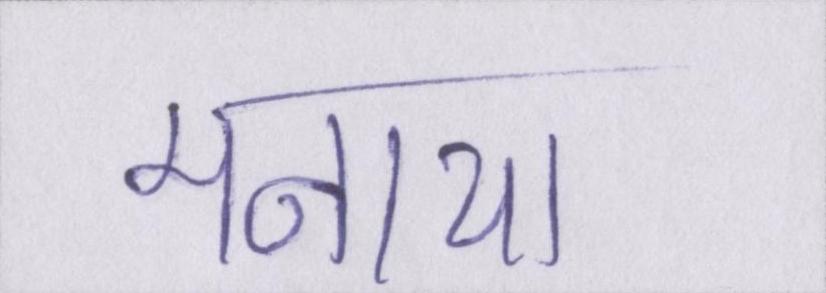 मनाया